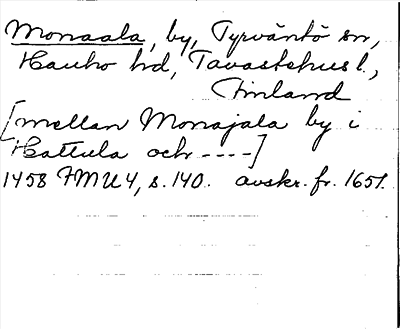 Monaala, by, Tyrväntö sn,
Hauho hd, Tavastehus l.,
Finland
[mellan Monajala by i
Hattula och ----]
1458 FMU 4, s. 140. avskr. fr. 1651.